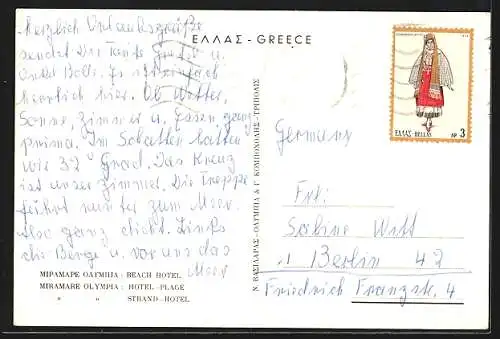 Herzlich Urlaubsgrüße
sendet Dir Tante Gretel u.
Onkel Bolli. Es ist einfach
herrlich hier. Ob Wetter,
Sonne, Zimmer u. Essen, ganz
prima. Im Schatten hatten
wir 32° Grad. Das Kreuz
ist unser Zimmer. Die Treppe
führt runter zum Meer.
Also ganz dicht. Links
die Berge u. vor uns das
Meer
ΜΙΡΑΜΑΡΕ ΟΛΥΜΠΙΑ : BEACH HOTEL
MIRAMARE OLYMPIA : HOTEL-PLAGE
" " STRAND-HOTEL
ΕΛΛΑΣ - GREECE
Ν. ΒΑΣΙΛΑΡΑΣ - ΟΛΥΜΠΙΑ & Γ. ΚΟΜΠΟΧΟΛΗΣ - ΤΡΙΠΟΛΙΣ
ΕΛΛΑΣ-HELLAS ΔΡ 3
Germany
Frl.
Sabine Witt
1 Berlin 42
Friedrich Franzstr. 4